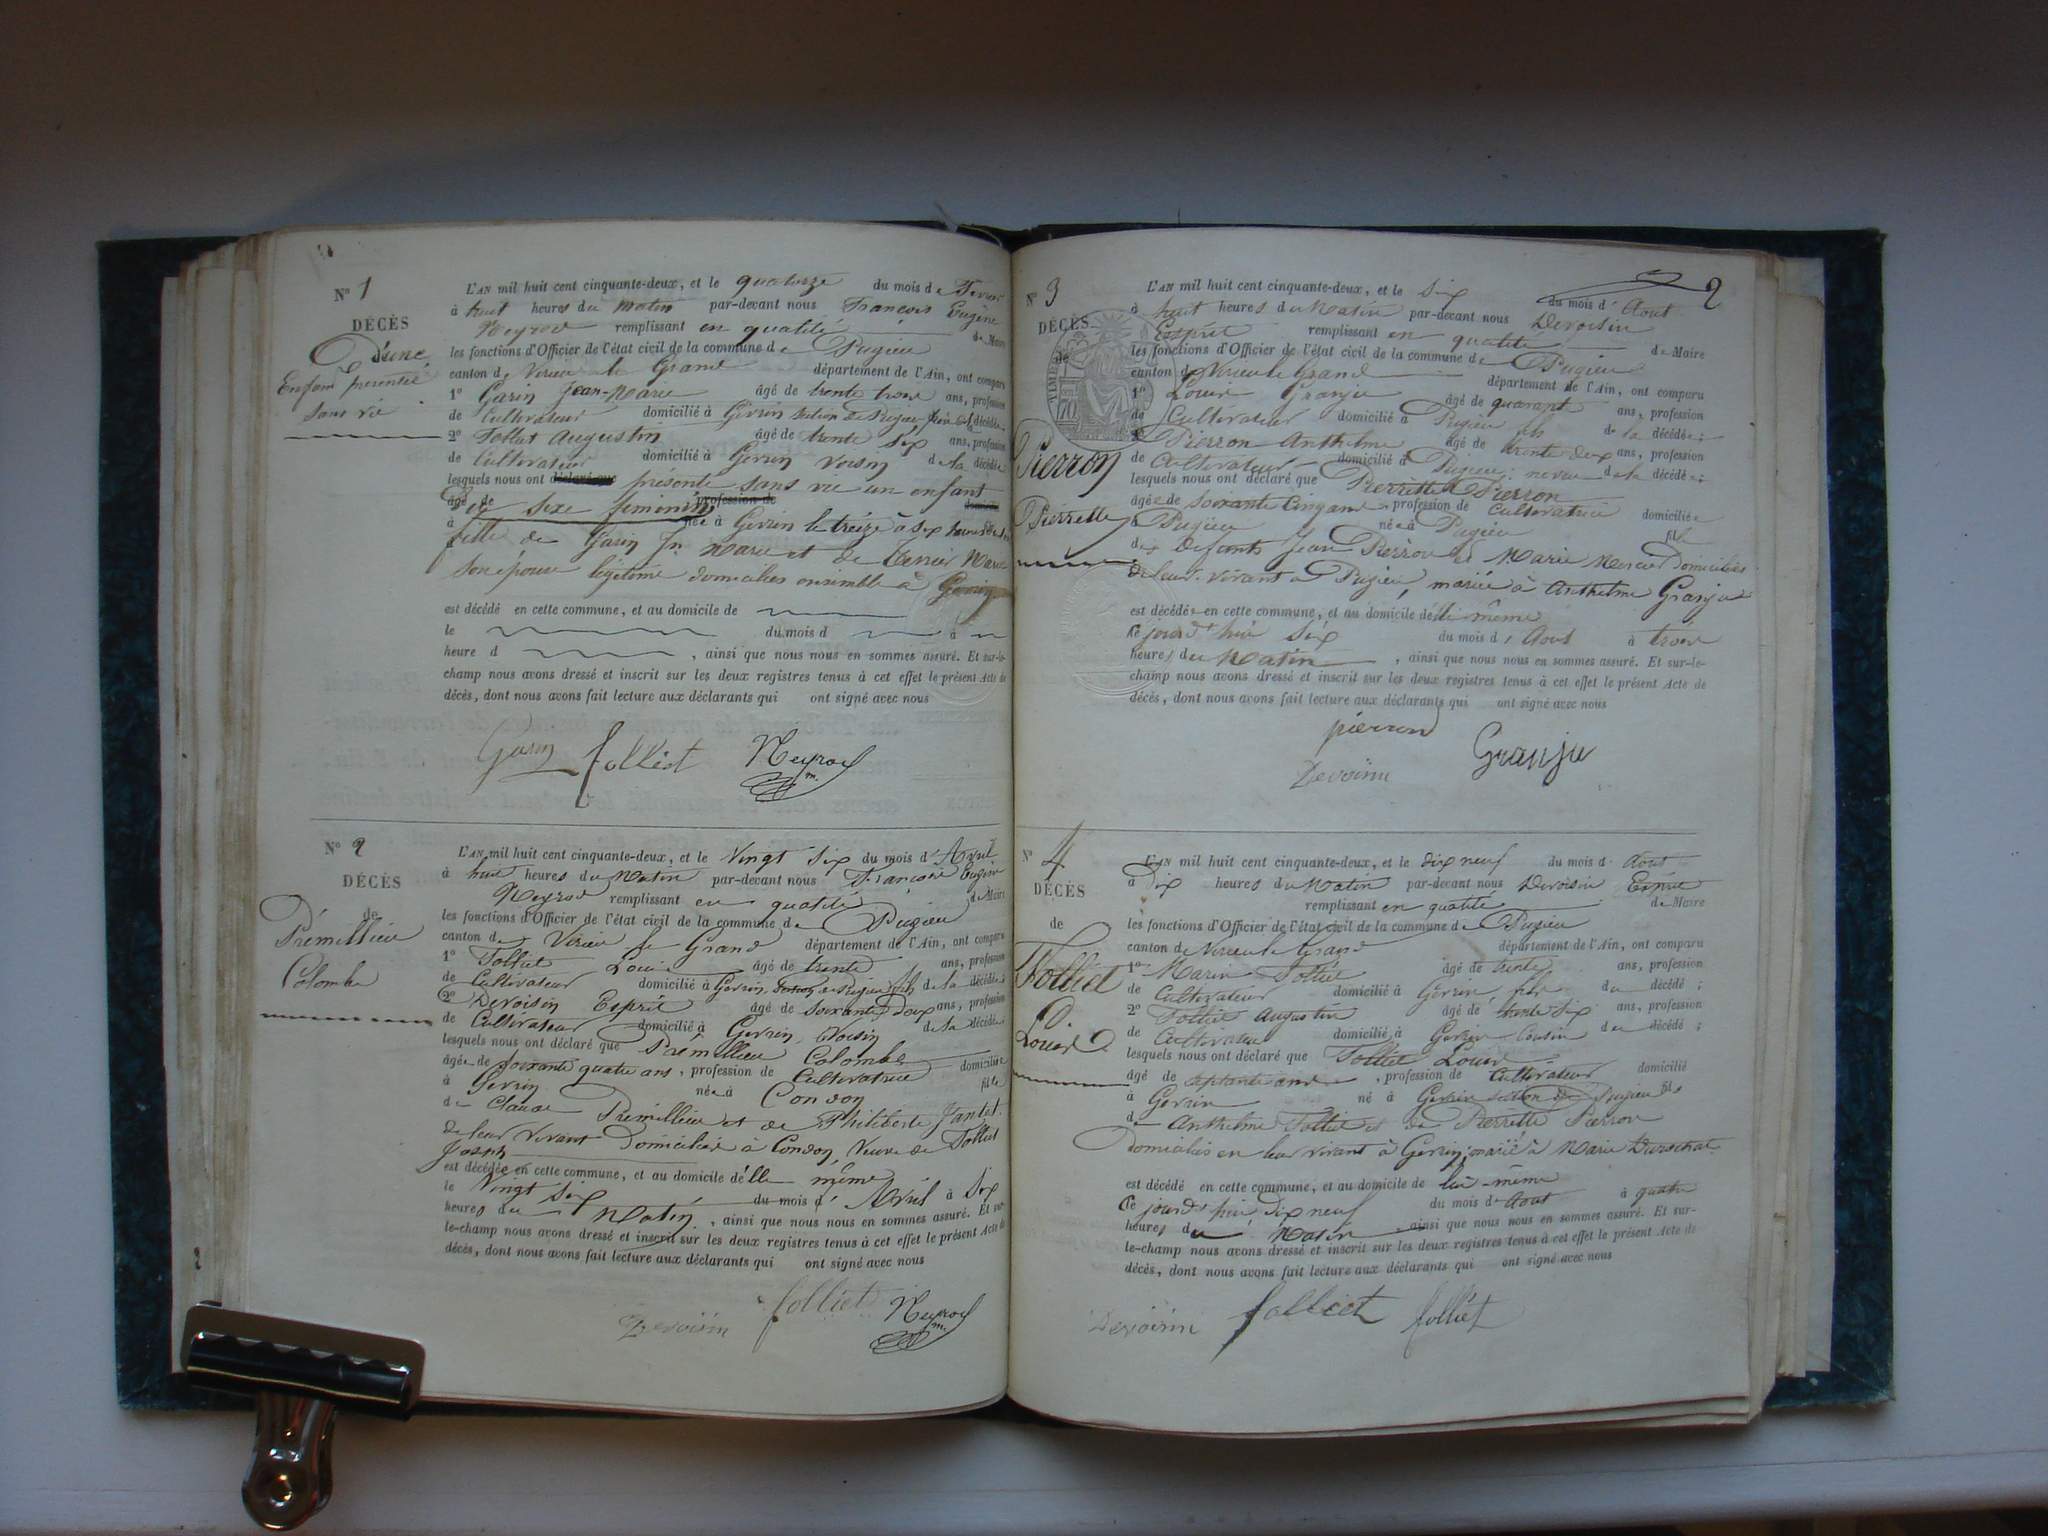 N° 1
DÉCÈS
D'une
Enfant présenté
sans vie
L'AN mil huit cent cinquante-deux, et le quatorze du mois de
à huit heures du matin par-devant nous François Eugène
Neyrod remplissant en qualité de Maire
les fonctions d'Officier de l'état civil de la commune de Pugieu
canton de Virieu le Grand département de l'Ain, ont comparu
1° Garin Jean-Marie âgé de trente trois ans, profession
de Cultivateur domicilié à Gevrin section de Pugieu décédé
2° Folliet Augustin âgé de trente six ans, profession
de Cultivateur domicilié à Gevrin voisin de la décédée
lesquels nous ont déclaré que présenté sans vie un enfant
âgé de profession de
De sexe feminin
à née à Gevrin le treize à six heures du
fille de Garin Jn Marie et de Marie
son épouse légitime domiciliés ensemble à Gevrin
est décédé en cette commune, et au domicile de
le du mois d à
heure d , ainsi que nous nous en sommes assuré. Et sur-le-
champ nous avons dressé et inscrit sur les deux registres tenus à cet effet le présent Acte de
décès, dont nous avons fait lecture aux déclarants qui ont signé avec nous
Garin folliet Neyrod m.
N° 2
DÉCÈS
de
Prémillieu
Colombe
L'AN mil huit cent cinquante-deux, et le Vingt Six du mois d'Avril
à huit heures du Matin par-devant nous François Eugène
Neyrod remplissant en qualité de Maire
les fonctions d'Officier de l'état civil de la commune de Pugieu
canton de Virieu le Grand département de l'Ain, ont comparu
1° Folliet Louis âgé de trente ans, profession
de Cultivateur domicilié à Gevrin, section de Pugieu fils de la décédée
2° Devoisin Esprit âgé de soixante deux ans, profession
de Cultivateur domicilié à Gevrin, Voisin de la décédée
lesquels nous ont déclaré que Prémillieu Colombe
âgée de soixante quatre ans, profession de Cultivatrice domiciliée
à Gevrin née à Condon fille
de Claude Prémillieu et de Philiberte Jantet
de leur vivant Domiciliés à Condon, Veuve de Folliet
Joseph
est décédée en cette commune, et au domicile d'elle même
le Vingt six du mois d'Avril à Six
heures du Matin, ainsi que nous nous en sommes assuré. Et sur-
le-champ nous avons dressé et inscrit sur les deux registres tenus à cet effet le présent Acte de
décès, dont nous avons fait lecture aux déclarants qui ont signé avec nous
Devoisin folliet Neyrod m.
2
2
N° 3
DÉCÈS
de
TIMBRE
70
Pierron
Pierrette
L'AN mil huit cent cinquante-deux, et le six du mois d'Aout
à huit heures du Matin par-devant nous Devoisin
Esprit remplissant en qualité de Maire
les fonctions d'Officier de l'état civil de la commune de Pugieu
canton de Virieu le Grand département de l'Ain, ont comparu
1° Louis Granju âgé de quarante ans, profession
de Cultivateur domicilié à Pugieu fils de la décédée;
2° Pierron Anthelme âgé de trente deux ans, profession
de Cultivateur domicilié à Pugieu; neveu de la décédée;
lesquels nous ont déclaré que Pierrette Pierron
âgée de soixante cinq ans, profession de Cultivatrice domiciliée
à Pugieu née à Pugieu fille
des Defunts Jean Pierron et Marie Mercier Domiciliés
de leur vivant à Pugieu, mariée à Anthelme Granju
est décédée en cette commune, et au domicile d'elle même
Ce jourd'hui six du mois d'Aout à trois
heures du Matin, ainsi que nous nous en sommes assuré. Et sur-le-
champ nous avons dressé et inscrit sur les deux registres tenus à cet effet le présent Acte de
décès, dont nous avons fait lecture aux déclarants qui ont signé avec nous
pierron
Devoisin Granju
N° 4
DÉCÈS
de
Folliet
Louis
L'AN mil huit cent cinquante-deux, et le dix neuf du mois d'Aout
à Dix heures du Matin par-devant nous Devoisin Esprit
remplissant en qualité de Maire
les fonctions d'Officier de l'état civil de la commune de Pugieu
canton de Virieu le Grand département de l'Ain, ont comparu
1° Marin Folliet âgé de trente ans, profession
de Cultivateur domicilié à Gevrin, fils du décédé;
2° Folliet Augustin âgé de trente six ans, profession
de Cultivateur domicilié à Gevrin Cousin du décédé;
lesquels nous ont déclaré que Folliet Louis
âgé de septante ans, profession de Cultivateur domicilié
à Gevrin né à Gevrin section de Pugieu fils
d'Anthelme Folliet et de Pierrette Pierron
Domiciliés en leur vivant à Gevrin; marié à Marie
est décédé en cette commune, et au domicile de lui-même
Ce jourd'hui dix neuf du mois d'Aout à quatre
heures du Matin, ainsi que nous nous en sommes assuré. Et sur-
le-champ nous avons dressé et inscrit sur les deux registres tenus à cet effet le présent Acte de
décès, dont nous avons fait lecture aux déclarants qui ont signé avec nous
Devoisin folliet folliet